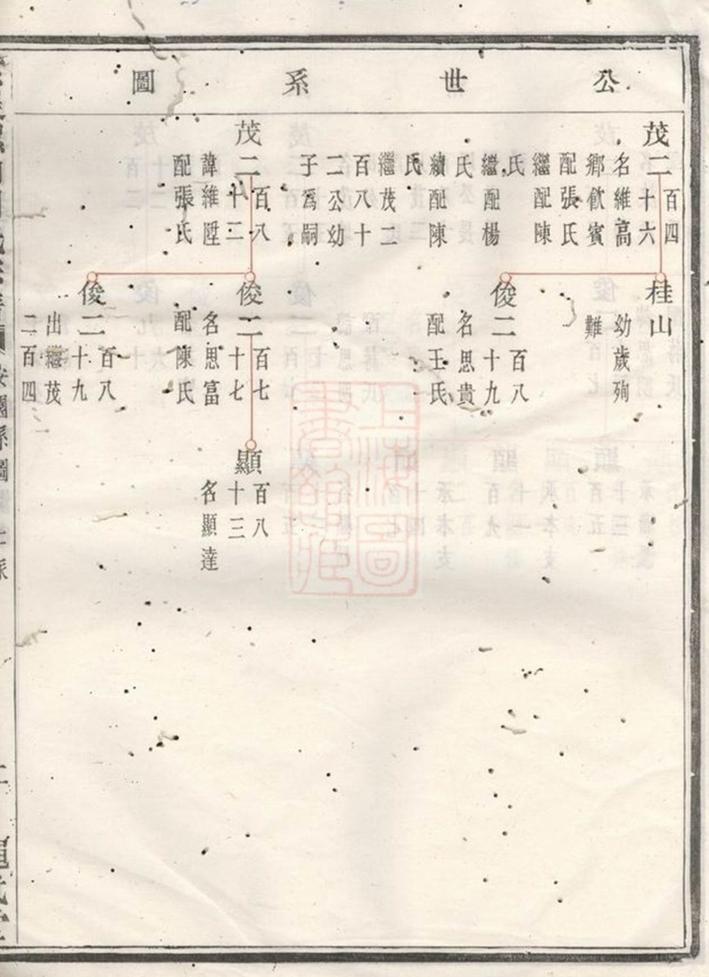 公世系圖
茂二百四十六
名維高
鄉飲賓
配張氏
繼配陳
氏
繼配楊
氏
續配陳
氏
繼茂二
百八十
二公幼
子爲嗣
茂二百八十二
諱維陞
配張氏
桂山
幼歲殉
難
俊二百八十九
名思貴
配王氏
俊二百七十七
名思富
配陳氏
俊二百八十九
出繼茂
二百四
顯百八十三
名顯達
上海圖
書館藏